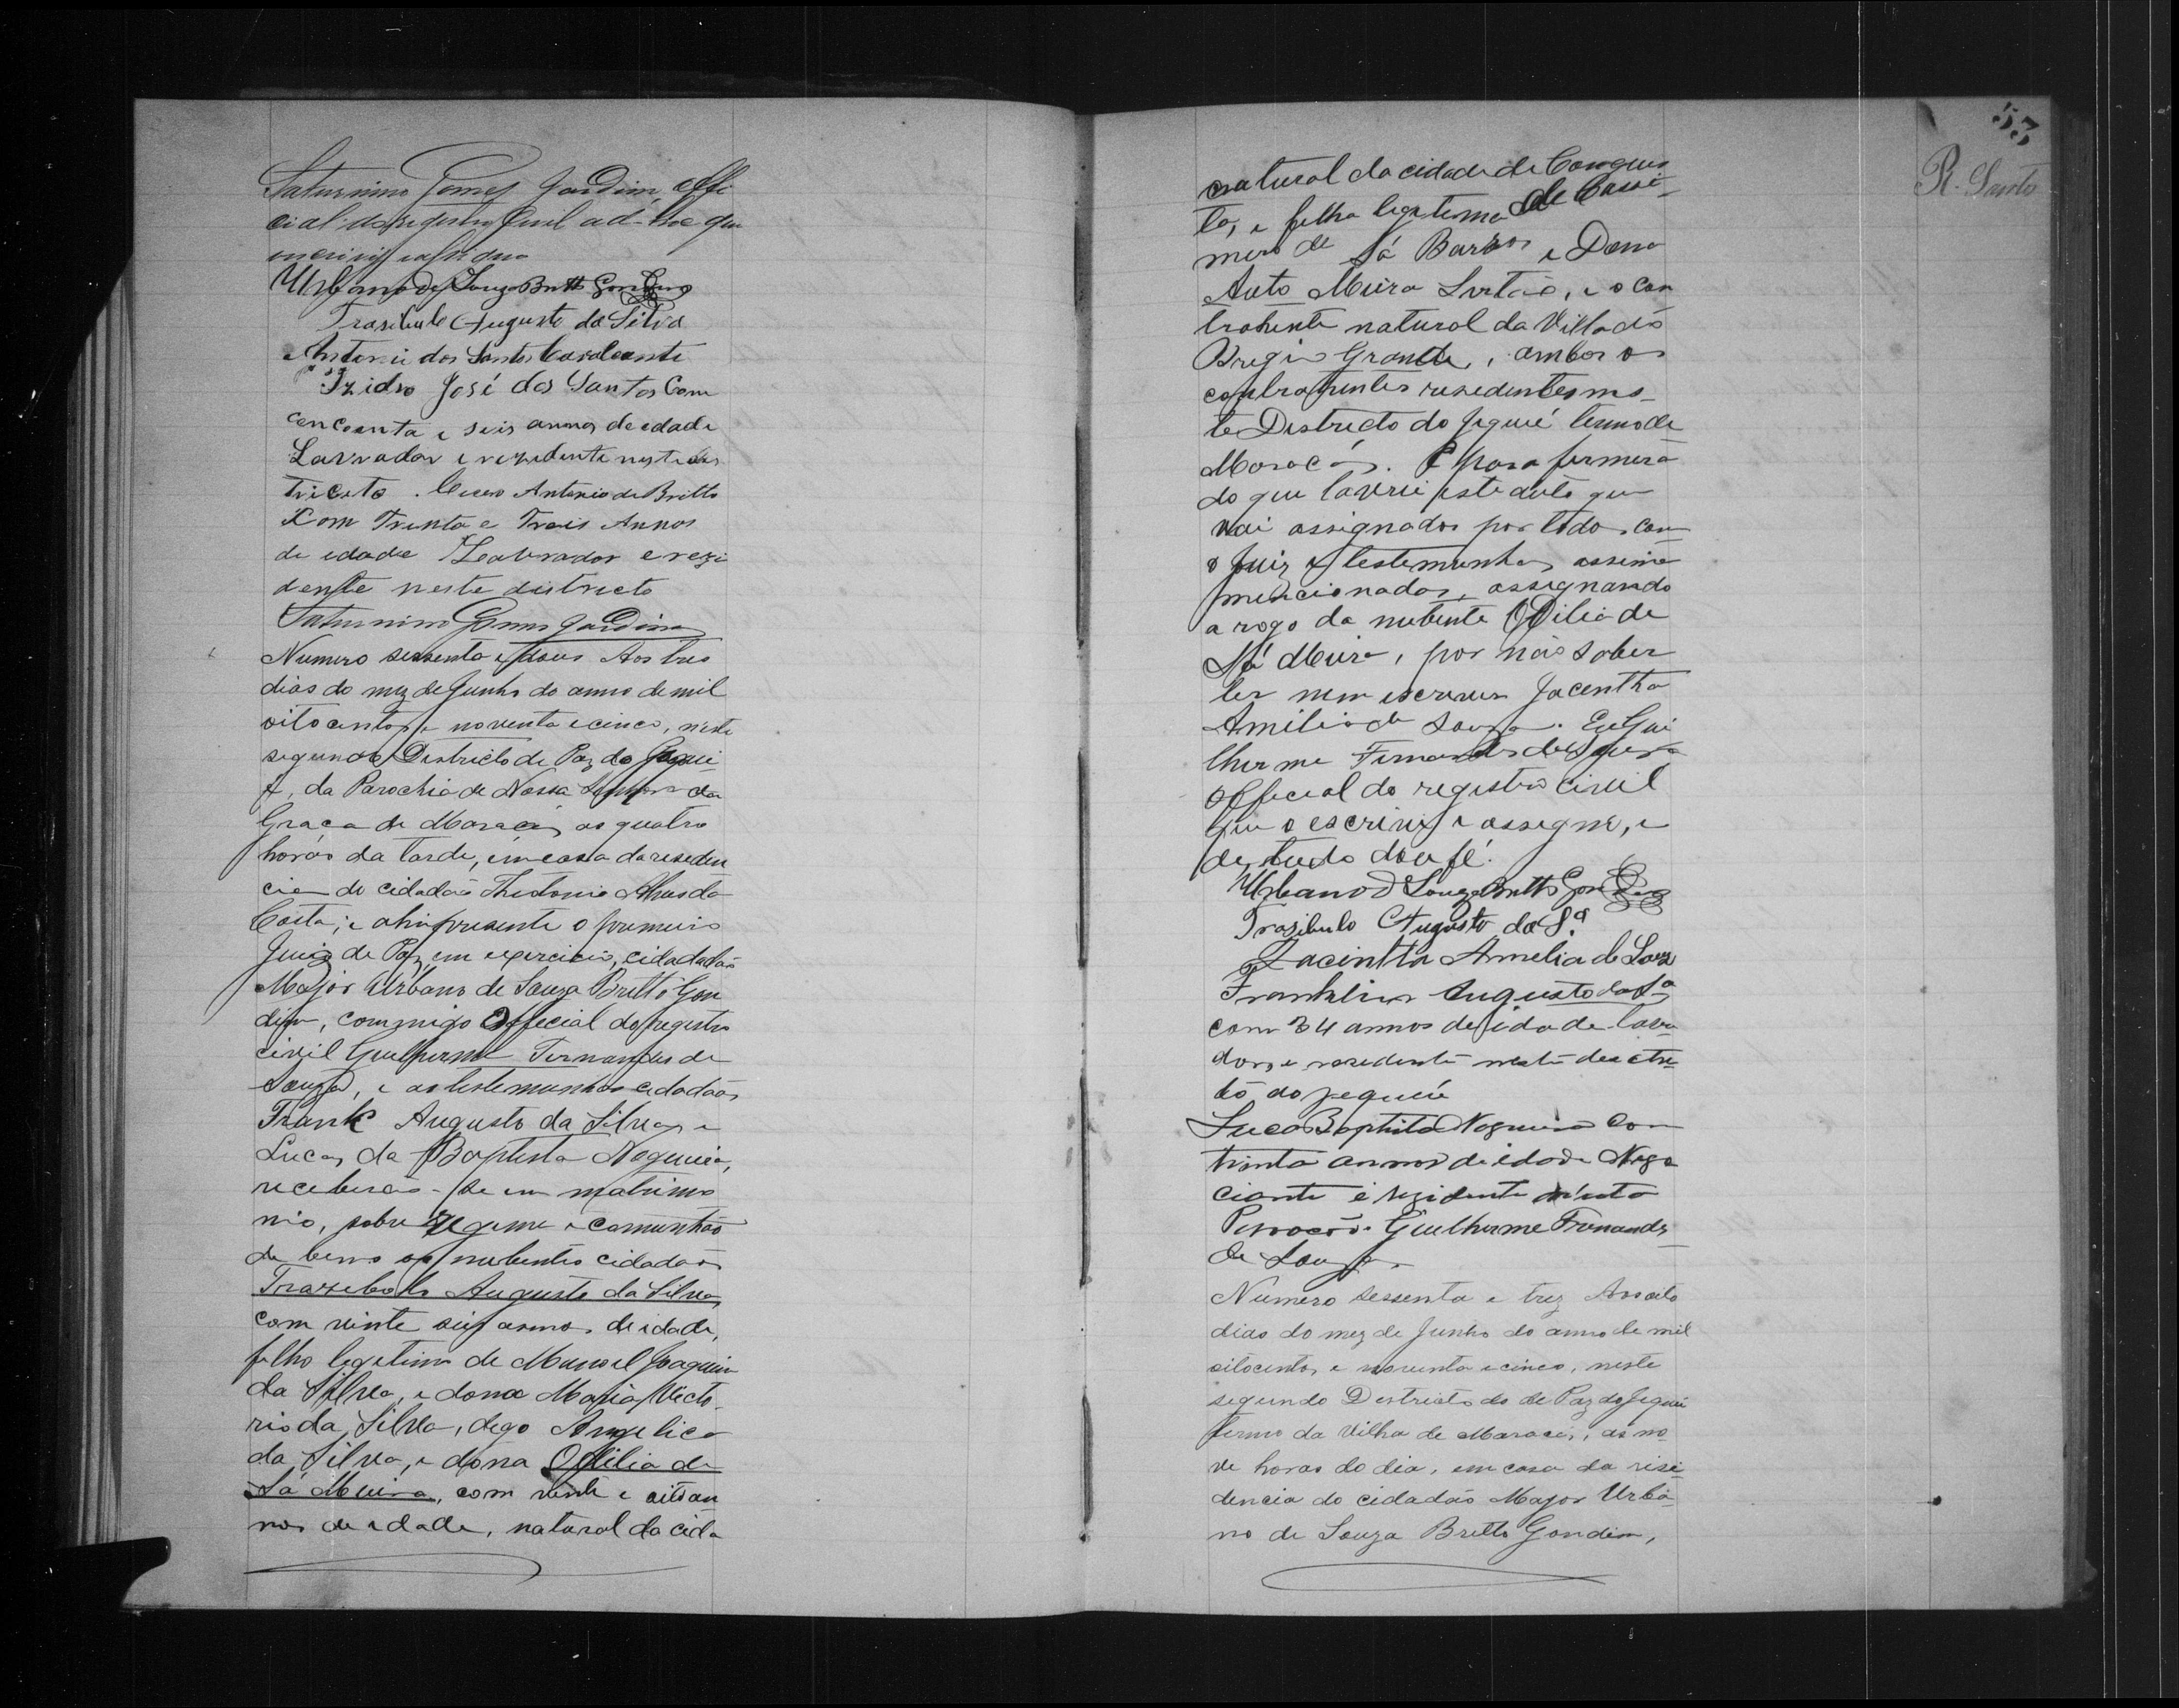 Saturnino Gomes Gondim, Offi
cial do registro Civil ad-hoc que
o escrivi
Urbano de Souza Britto Gondim
Trasibulo Augusto da Silva
Antonio dos Santos Cavalcante
Izidro José dos Santos Com
cencoenta e seis annos de edade
Lavrador e rezidente neste dis
tricto. Cicero Antonio de Britto
Com Trinta e Trais Annos
de edade Leavrador e rezi
dente neste districto
Saturnino Gomes Gondim
Numero sessenta e dous Aos tres
dias do mez de Junho do anno de mil
oitocentos e noventa e cinco, neste
segundo Districto de Paz do Jequi
é, da Parochia de Nossa Senhora da
Graça de Maracás as quatro
horas da tarde, em casa da residen
cia do cidadão Theotonio Alves da
Costa; e ahi presente o primeiro
Juiz de Paz em exercicio, cidadadão
Major Urbano de Souza Britto Gon
dim, commigo Official do registro
civil Guilherme Fernandes de
Souza, e as testemunhas cidadãos
Frank Augusto da Silva e
Lucas da Baptista Nogueira,
receberão-se em matrimo
nio, sobre Regime e comunhão
de bens os nubentes cidadão
Trazebolo Augusto da Silva,
com vinte seis annos de edade,
filho legitimo de Manoel Joaquim
da Silva, e dona Maria Victo
ria da Silva, digo Angelica
da Silva, e dona Odilia de
Sá Meira, com vinte e oito an
nos de edade, natural da cida
53
R. Santo
natural da cidade de Conquis
ta, e filha legitima de Cassi-
mero de Sá Barros e Dona
Auto Meira Sertão, e o con
trahente natural da Villa do
Brejo Grande, ambos os
contrahentes residentes nes-
te Districto do Jequié termo de
Maracás. E para firmera
do que lavrei este auto que
vai assignados por todos, com
o Juiz e testemunhas assima
mencionados, assignando
a rogo da nubente Odilia de
Sá Meira, por não saber
ler nem escrever Jacentha
Amilia de Souza. Eu Gui
lherme Fernandes de Souza
Official do registro civil
que o escrivi e assigno, e
de tudo dou fé.
Urbano d Souza Britto Gondim
Trasibulo Augusto da S.ª
Jacintha Amelia de Souza
Franklin Augusto da S.ª
com 34 annos de idade lavra
dor, e residente neste destri-
to do jequié
Luca Baptista Nogueira Com
trinta annos de idade Nego
ciante e rezidente n'esta
Guilherme Fernandes
de Souza.
Numero sessenta e trez Aos oito
dias do mez de Junho do anno de mil
oitocentos e noventa e cinco, neste
segundo Destricto do de Paz do Jequié
termo da Villa de Maracás, as no
ve horas do dia, em casa da risi
dencia do cidadão Major Urba
no de Souza Britto Gondim,